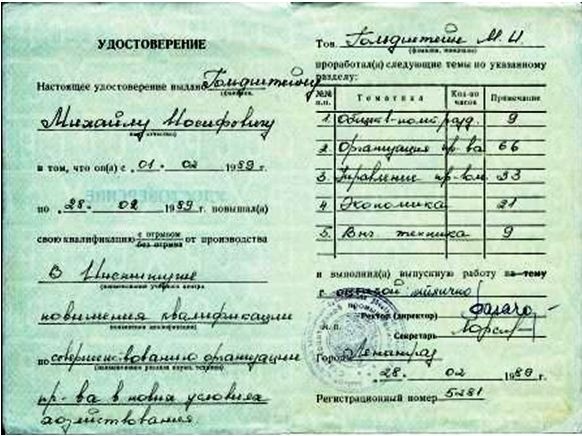 УДОСТОВЕРЕНИЕ
Настоящее удостоверение выдано Гольдштейну
Михаилу Иосифовичу
в том, что он(а) с 01 - 02 1989 г.
по 28 - 02 1989 г. повышал(а)
свою квалификацию с отрывом от производства
без отрыва
в Институте
повышения квалификации
по совершенствованию организации
пр-ва в новых условиях
хозяйствования.
Тов. Гольдштейн М.И.
(фамилия, инициалы)
проработал(а) следующие темы по указанному
разделу:
№№ п.п. Тематика Кол-во часов Примечание
1. Обществ-полит. разд. 9
2. Организация пр-ва 66
3. Управление пр-вом 33
4. Экономика 21
5. Выч. техника 9
и выполнил(а) выпускную работу на тему
с оценкой отлично
Ректор (директор)
М.п.
Секретарь
Город Ленинград
28. 02 1989 г.
Регистрационный номер 5281